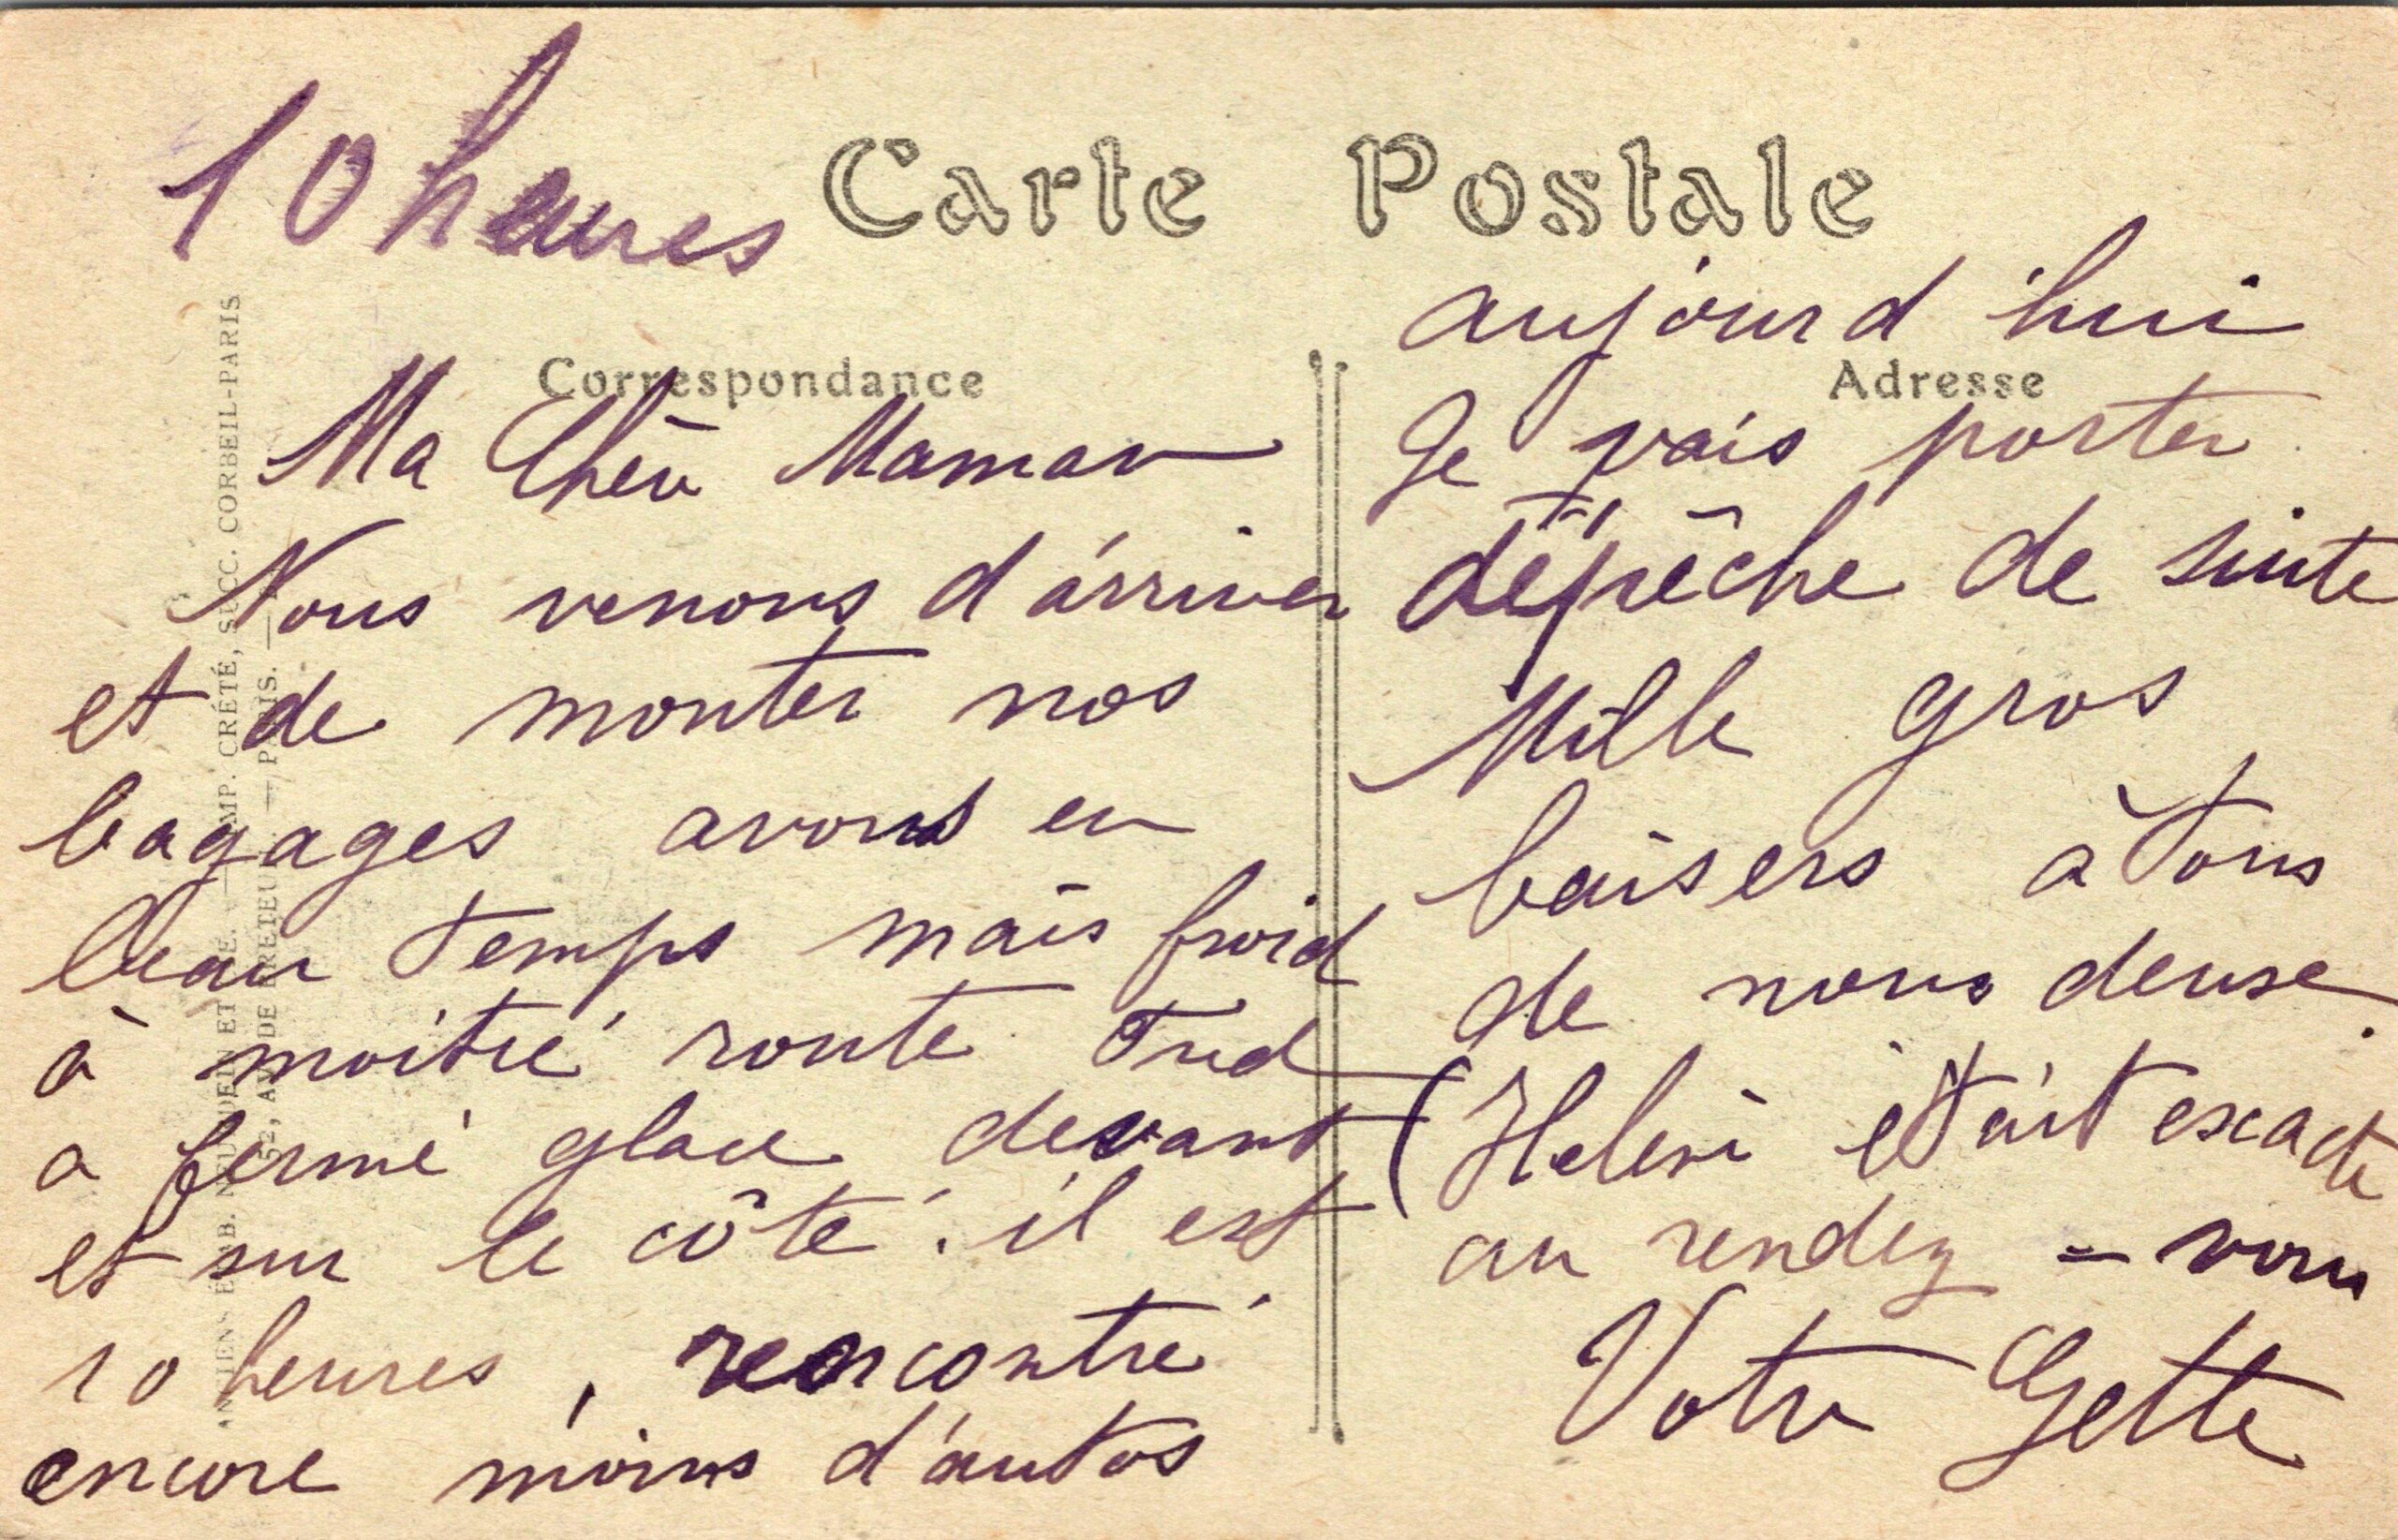 10 heures
Carte Postale
Correspondance
Ma Chère Maman
Nous venons d'arriver
et de monter nos
bagages avons eu
beau temps mais froid
à moitié route Fred
a fermé glace devant
et sur le côté. il est
10 heures, rencontré
encore moins d'autos
aujourd'hui
Adresse
Je vais porter
dépêche de suite
Mille gros
baisers à tous
de nous deux.
(Hélène était exacte
au rendez-vous
Votre Gette
ANCIENS ÉTAB. NEURDEIN ET CIE. — IMP. CRÉTÉ, SUCC. CORBEIL-PARIS
52, AV. DE BRETEUIL. — PARIS. —